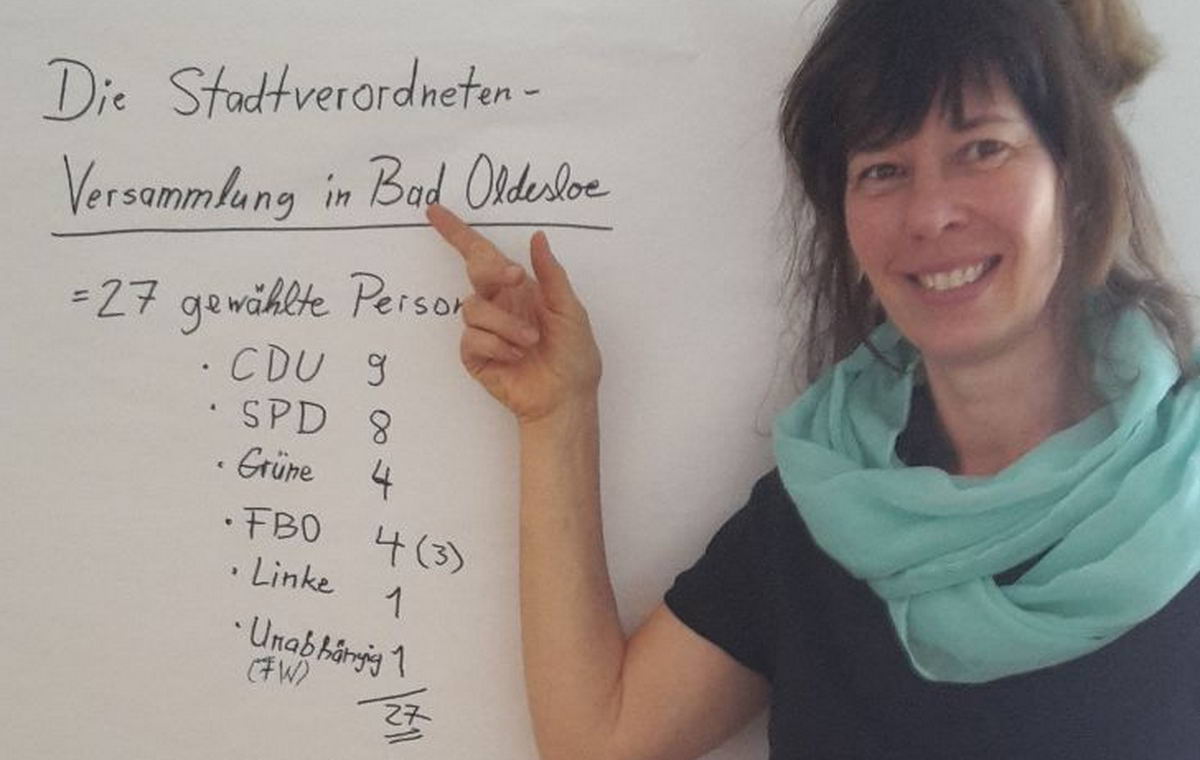 Die Stadtverordneten-
Versammlung in Bad Oldesloe
= 27 gewählte Person
· CDU 9
· SPD 8
· Grüne 4
· FBO 4 (3)
· Linke 1
· Unabhängig 1
(FW)
27